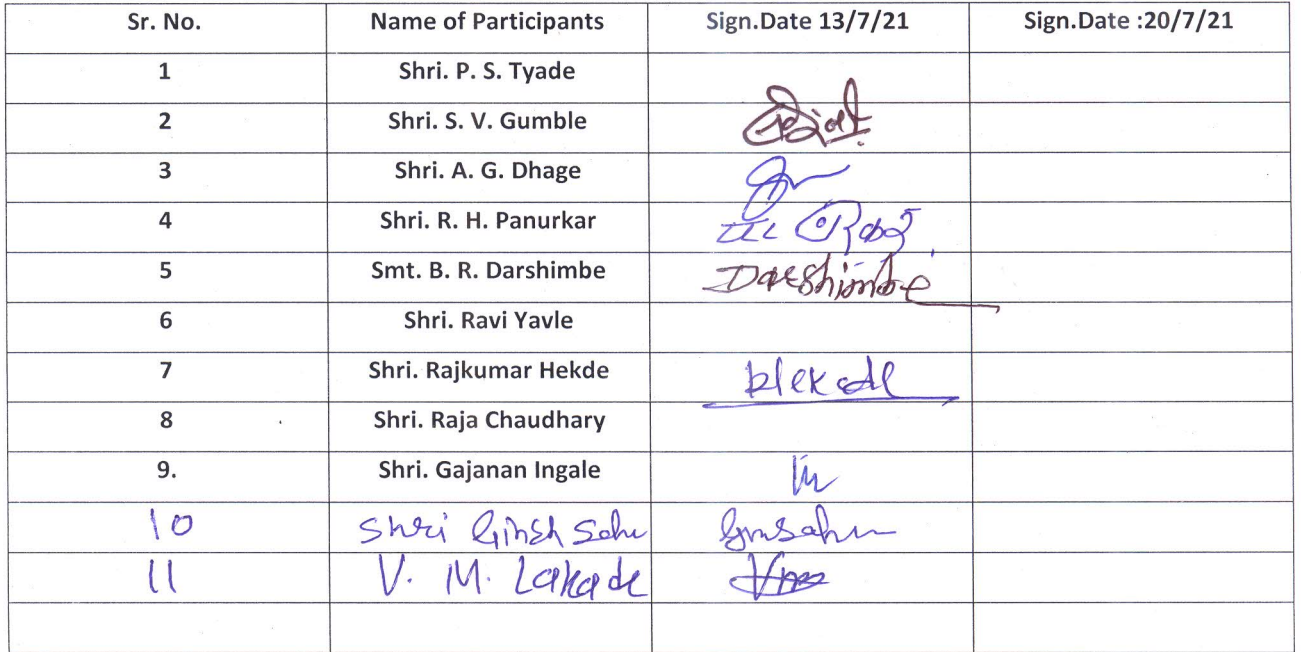 Sr. No. Name of Participants Sign.Date 13/7/21 Sign.Date :20/7/21
1 Shri. P. S. Tyade
2 Shri. S. V. Gumble
3 Shri. A. G. Dhage
4 Shri. R. H. Panurkar
5 Smt. B. R. Darshimbe Darshimbe
6 Shri. Ravi Yavle
7 Shri. Rajkumar Hekde
8 Shri. Raja Chaudhary
9. Shri. Gajanan Ingale
10 Shri Sahu
11 V. M. Lakade